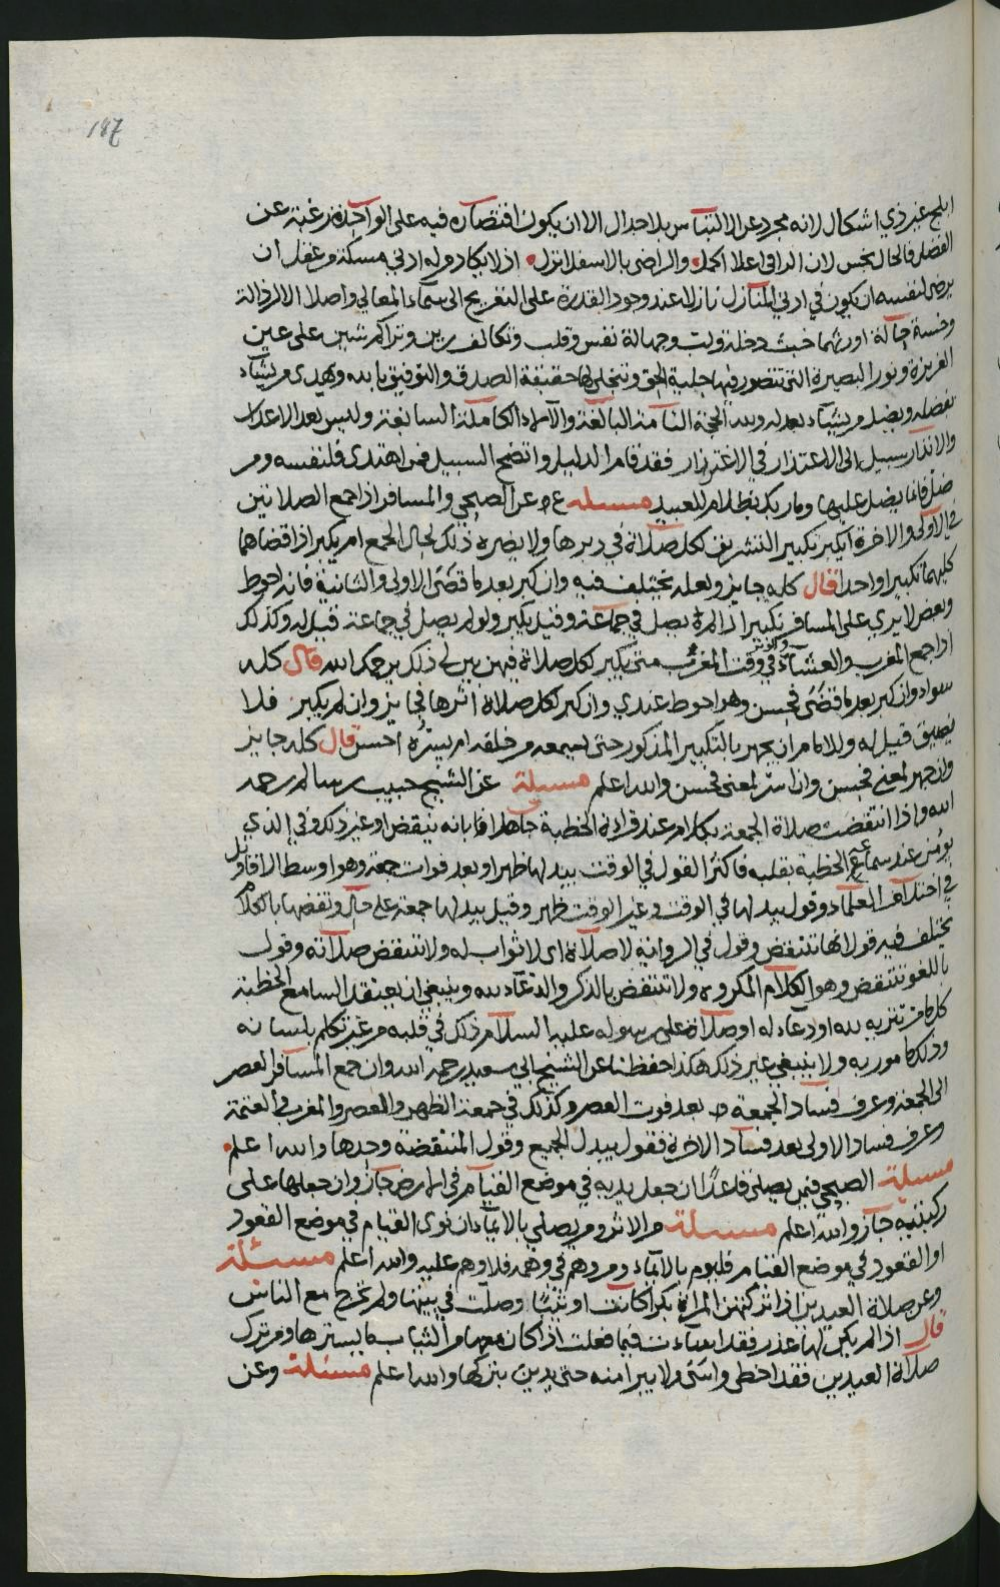 187
ابلج غير ذي اشكال لانه مجرد عن الالتباس بلا جدال الا ان يكون اقتصاره فيه على الواحدة رغبة عن
الفضل فالحال بخس لان الراقي اعلا اكمل والراضي بالاسفل انزل اذ لا يكاد من له ادنى مسكة من عقل ان
يرضى لنفسه ان يكون في ادنى المنازل نازلا عند وجود القدرة على التعريج الى سماء المعالي واصلا الا لرذالة
وخسة حالة اورثهما خبث دخلة وجهالة نفس وقلب وتكاثف رين وتراكم شين على عين
الغريزة ونور البصيرة التي تتصور فيها جلية الحق وتتجلى لها حقيقة الصدق والتوفيق بالله ويهدي من يشاء
بفضله ويضل من يشاء بعدله ولله الحجة التامة البالغة والآلاء الكاملة السابغة وليس بعد الاعذار
والانذار سبيل الى الاعتذار في الاغترار فقد قام الدليل واتضح السبيل فمن اهتدى فلنفسه ومن
ضل فانما يضل عليها وما ربك بظلام للعبيد مسئله ع عن الصبحي والمسافر اذا جمع الصلاتين
في الاولى والاخرة ايكبر تكبير التشريق لكل صلاة في دبرها ولا يضره ذلك لحال الجمع ام يكبر اذا قضاهما
كليهما تكبيرا واحدا قال كله جايز ولعله يختلف فيه وان كبر بعد ما قضى الاولى والثانية فانه احوط
وبعض لا يرى على المسافر تكبيرا اذا لم يصل في جماعة وقيل يكبر ولو لم يصل في جماعة قيل له وكذلك
اذا جمع المغرب والعشاء والوتر في وقت المغرب متى يكبر لكل صلاة فيهن بين لي ذلك يرحمك الله قال كله
سواء وان كبر بعد ما قضى فحسن وهو احوط عندي وان كبر لكل صلاة اثرها فجايز وان لم يكبر فلا
يضيق قيل له وللامام ان يجهر بالتكبير المذكور حتى يسمعه من خلفه ام يسره احسن قال كله جايز
وان جهر لمعنى فحسن وان اسر لمعنى فحسن والله اعلم مسئلة عن الشيخ حبيب بن سالم رحمه
الله واذا انتقضت صلاة الجمعة بكلام عند قراءة الخطبة جاهلا فانه ينقض او غير ذلك وفي الذي
يؤمن عند سماعه الخطبة بقلبه فاكثر القول في الوقت يبدلها ظهرا وبعد فوات جمعة وهو اوسط الاقاويل
في اختلاف العلماء وقول يبدلها في الوقت وغير الوقت ظهر وقيل يبدلها جمعة على حال ونقضها بالكلام
يختلف فيه قول انها تنتقض وقول في الرواية لا صلاة اي لا ثواب له ولا تنتقض صلاته وقول
باللغو تنتقض وهو الكلام المكروه ولا تنتقض بالذكر والدعاء لله وينبغي ان يعتقد السامع الخطبة
كلما من تنزيه لله او دعاء له او صلاة على رسوله عليه السلام ذلك في قلبه من غير تكلم بلسانه
وذلك ما مور به ولا ينبغي غير ذلك هكذا حفظنا عن الشيخ ابي سعيد رحمه الله وان جمع المسافر العصر
الى الجمعة وعرف فساد الجمعة بعد فوت العصر وكذلك في جمعة الظهر والعصر والمغرب والعتمة
وعرف فساد الاولى بعد فساد الاخرة فقول يبدل الجميع وقول المنتقضة وحدها والله اعلم
مسئلة الصبحي فيمن يصلي قاعدا ان جعل يديه في موضع القيام في الارض جاز وان جعلها على
ركبتيه جاز والله اعلم مسئلة من الاثر ومن يصلي بالايماء ان نوى القيام في موضع القعود
او القعود في موضع القيام فليوم بالايماء ومن وهم في وهمه فلا وهم عليه والله اعلم مسئلة
وعن صلاة العيدين اذا تركتهن المراة بكرا كانت او ثيبا وصلت في بيتها ولم تخرج مع الناس
قال اذا لم يكن لها عذر فقد اساءت فيما فعلت اذا كان معها من الثياب ما يسترها ومن ترك
صلاة العيدين فقد اخطى واسئ ولا يبرا منه حتى يدين بتركها والله اعلم مسئلة وعن